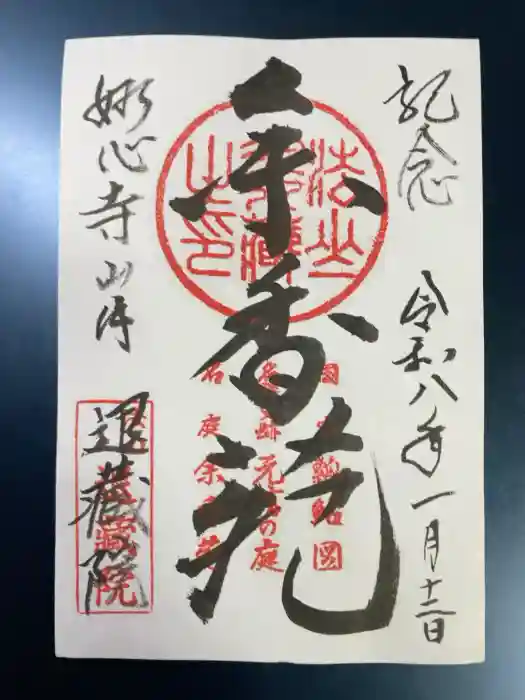 記念
令和八年一月十二日
余香苑
国宝瓢鮎図
史跡元信の庭
名庭余香苑
妙心寺山内
退蔵院